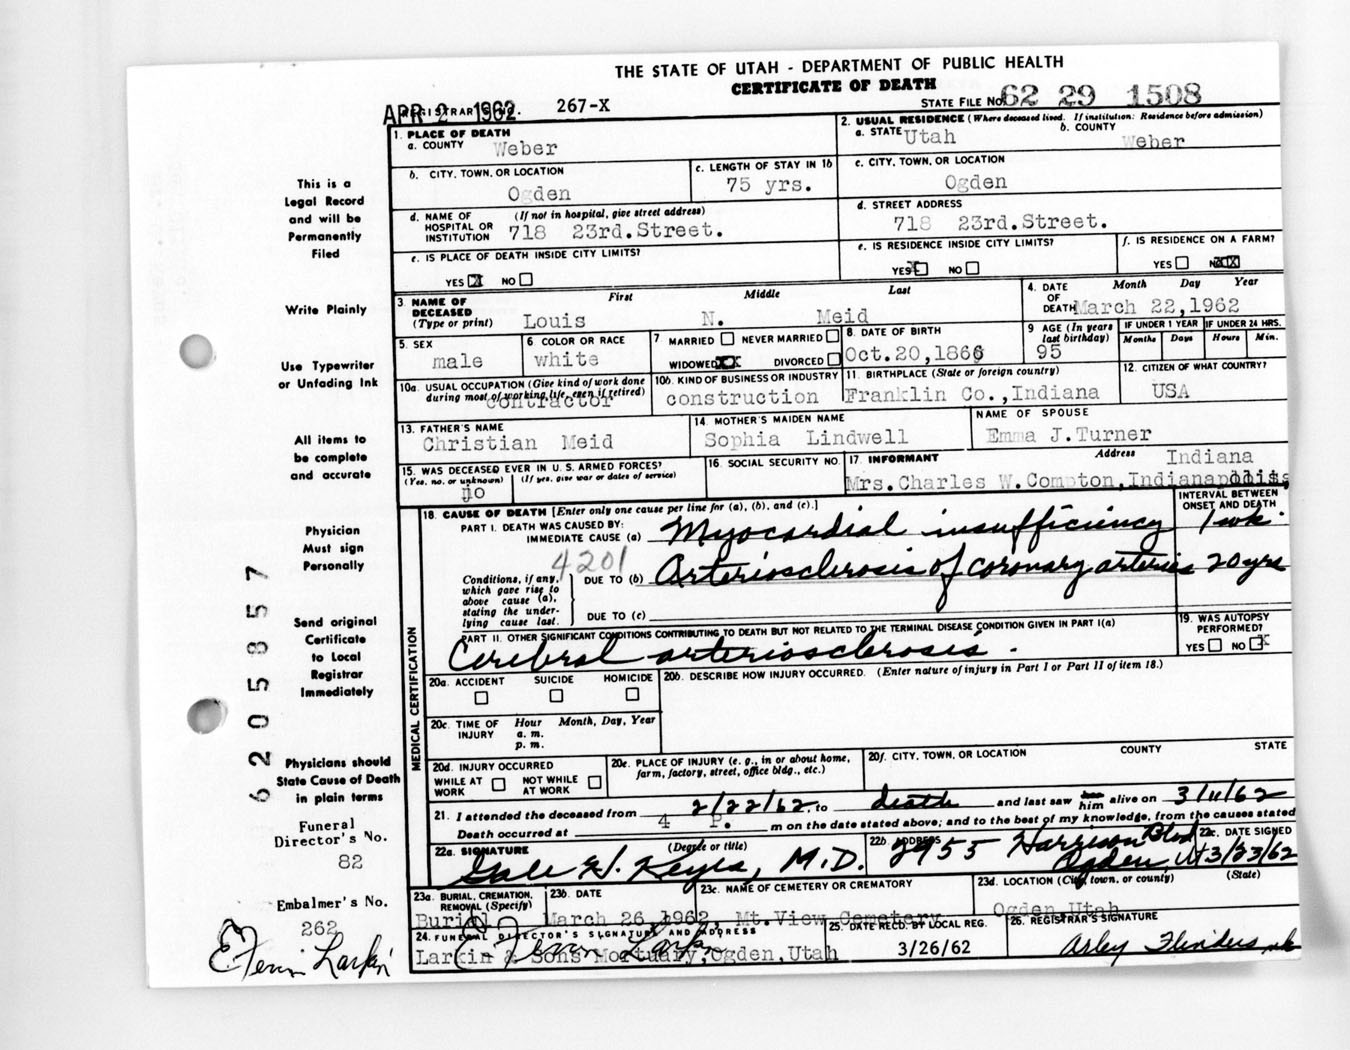 THE STATE OF UTAH - DEPARTMENT OF PUBLIC HEALTH
CERTIFICATE OF DEATH
APR 2 1962 REGISTRAR'S NO. 267-X STATE FILE NO. 62 29 1508
1. PLACE OF DEATH
a. COUNTY Weber
2. USUAL RESIDENCE (Where deceased lived. If institution: Residence before admission)
a. STATE Utah b. COUNTY Weber
b. CITY, TOWN, OR LOCATION Ogden
c. LENGTH OF STAY IN 1b 75 yrs.
c. CITY, TOWN, OR LOCATION Ogden
d. NAME OF HOSPITAL OR INSTITUTION (If not in hospital, give street address) 718 23rd.Street.
d. STREET ADDRESS 718 23rd.Street.
e. IS PLACE OF DEATH INSIDE CITY LIMITS? YES X NO
e. IS RESIDENCE INSIDE CITY LIMITS? YES X NO
f. IS RESIDENCE ON A FARM? YES NO X
3. NAME OF DECEASED (Type or print) First Middle Last
Louis N. Meid
4. DATE OF DEATH Month Day Year March 22,1962
5. SEX male
6. COLOR OR RACE white
7 MARRIED NEVER MARRIED WIDOWED XX DIVORCED
8. DATE OF BIRTH Oct.20,1866
9 AGE (In years last birthday) 95
IF UNDER 1 YEAR Months Days
IF UNDER 24 HRS. Hours Min.
10a. USUAL OCCUPATION (Give kind of work done during most of working life, even if retired) contractor
10b. KIND OF BUSINESS OR INDUSTRY construction
11. BIRTHPLACE (State or foreign country) Franklin Co.,Indiana
12. CITIZEN OF WHAT COUNTRY? USA
13. FATHER'S NAME Christian Meid
14. MOTHER'S MAIDEN NAME Sophia Lindwell
NAME OF SPOUSE Emma J.Turner
15. WAS DECEASED EVER IN U.S. ARMED FORCES? (Yes, no, or unknown) (If yes, give war or dates of service) no
16. SOCIAL SECURITY NO.
17. INFORMANT Address Indiana
Mrs.Charles W.Compton,Indianapolis
18. CAUSE OF DEATH [Enter only one cause per line for (a), (b), and (c).]
INTERVAL BETWEEN ONSET AND DEATH
PART I. DEATH WAS CAUSED BY:
IMMEDIATE CAUSE (a) Myocardial insufficiency 1 wk.
4201
Conditions, if any, which gave rise to above cause (a), stating the underlying cause last.
DUE TO (b) Arteriosclerosis of coronary arteries 20 yrs
DUE TO (c)
PART II. OTHER SIGNIFICANT CONDITIONS CONTRIBUTING TO DEATH BUT NOT RELATED TO THE TERMINAL DISEASE CONDITION GIVEN IN PART I(a)
Cerebral arteriosclerosis.
19. WAS AUTOPSY PERFORMED? YES NO X
MEDICAL CERTIFICATION
20a. ACCIDENT SUICIDE HOMICIDE
20b. DESCRIBE HOW INJURY OCCURRED. (Enter nature of injury in Part I or Part II of item 18.)
20c. TIME OF INJURY Hour a.m. p.m. Month, Day, Year
20d. INJURY OCCURRED WHILE AT WORK NOT WHILE AT WORK
20e. PLACE OF INJURY (e. g., in or about home, farm, factory, street, office bldg., etc.)
20f. CITY, TOWN, OR LOCATION COUNTY STATE
21. I attended the deceased from 2/22/62, to death and last saw him alive on 3/11/62
Death occurred at 4 P. m on the date stated above; and to the best of my knowledge, from the causes stated
22a. SIGNATURE (Degree or title) Gale H. Keyes, M.D.
22b. ADDRESS 2955 Harrison Blvd Ogden, Ut
22c. DATE SIGNED 3/23/62
23a. BURIAL, CREMATION, REMOVAL (Specify) Burial
23b. DATE March 26,1962,
23c. NAME OF CEMETERY OR CREMATORY Mt.View Cemetery
23d. LOCATION (City, town, or county) (State) Ogden Utah
24. FUNERAL DIRECTOR'S SIGNATURE AND ADDRESS
Larkin & Sons Mortuary,Ogden,Utah
25. DATE RECD. BY LOCAL REG. 3/26/62
26. REGISTRAR'S SIGNATURE Arley Flinders
This is a
Legal Record
and will be
Permanently
Filed
Write Plainly
Use Typewriter
or Unfading Ink
All items to
be complete
and accurate
Physician
Must sign
Personally
Send original
Certificate
to Local
Registrar
Immediately
Physicians should
State Cause of Death
in plain terms
Funeral
Director's No.
82
Embalmer's No.
262
Larkin
6205857